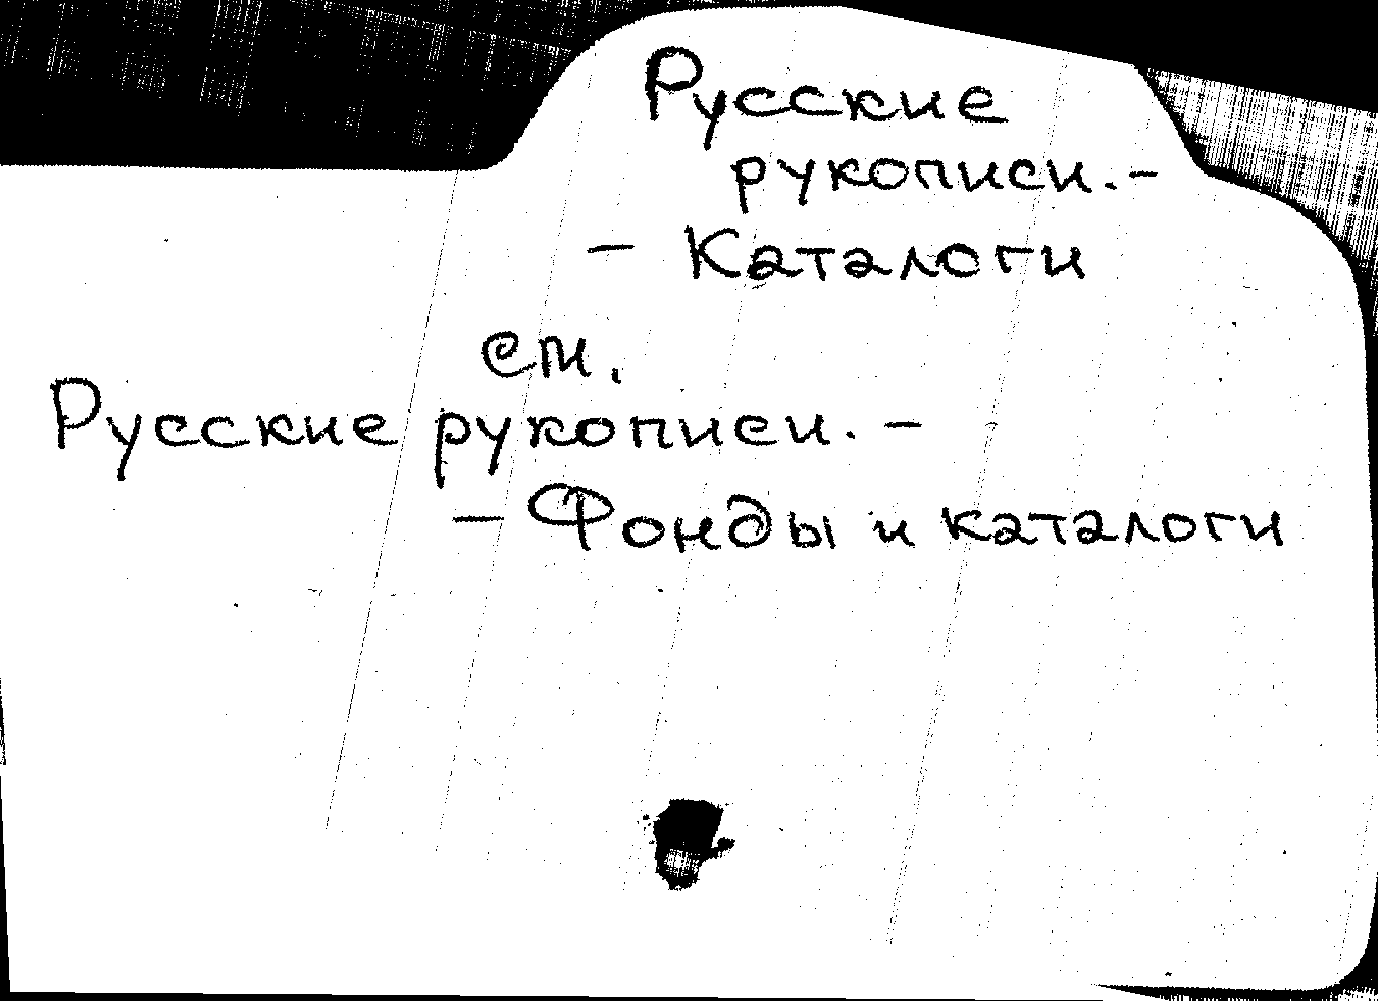 Русские
рукописи. -
- Каталоги
см.
Русские рукописи. -
- Фонды и каталоги